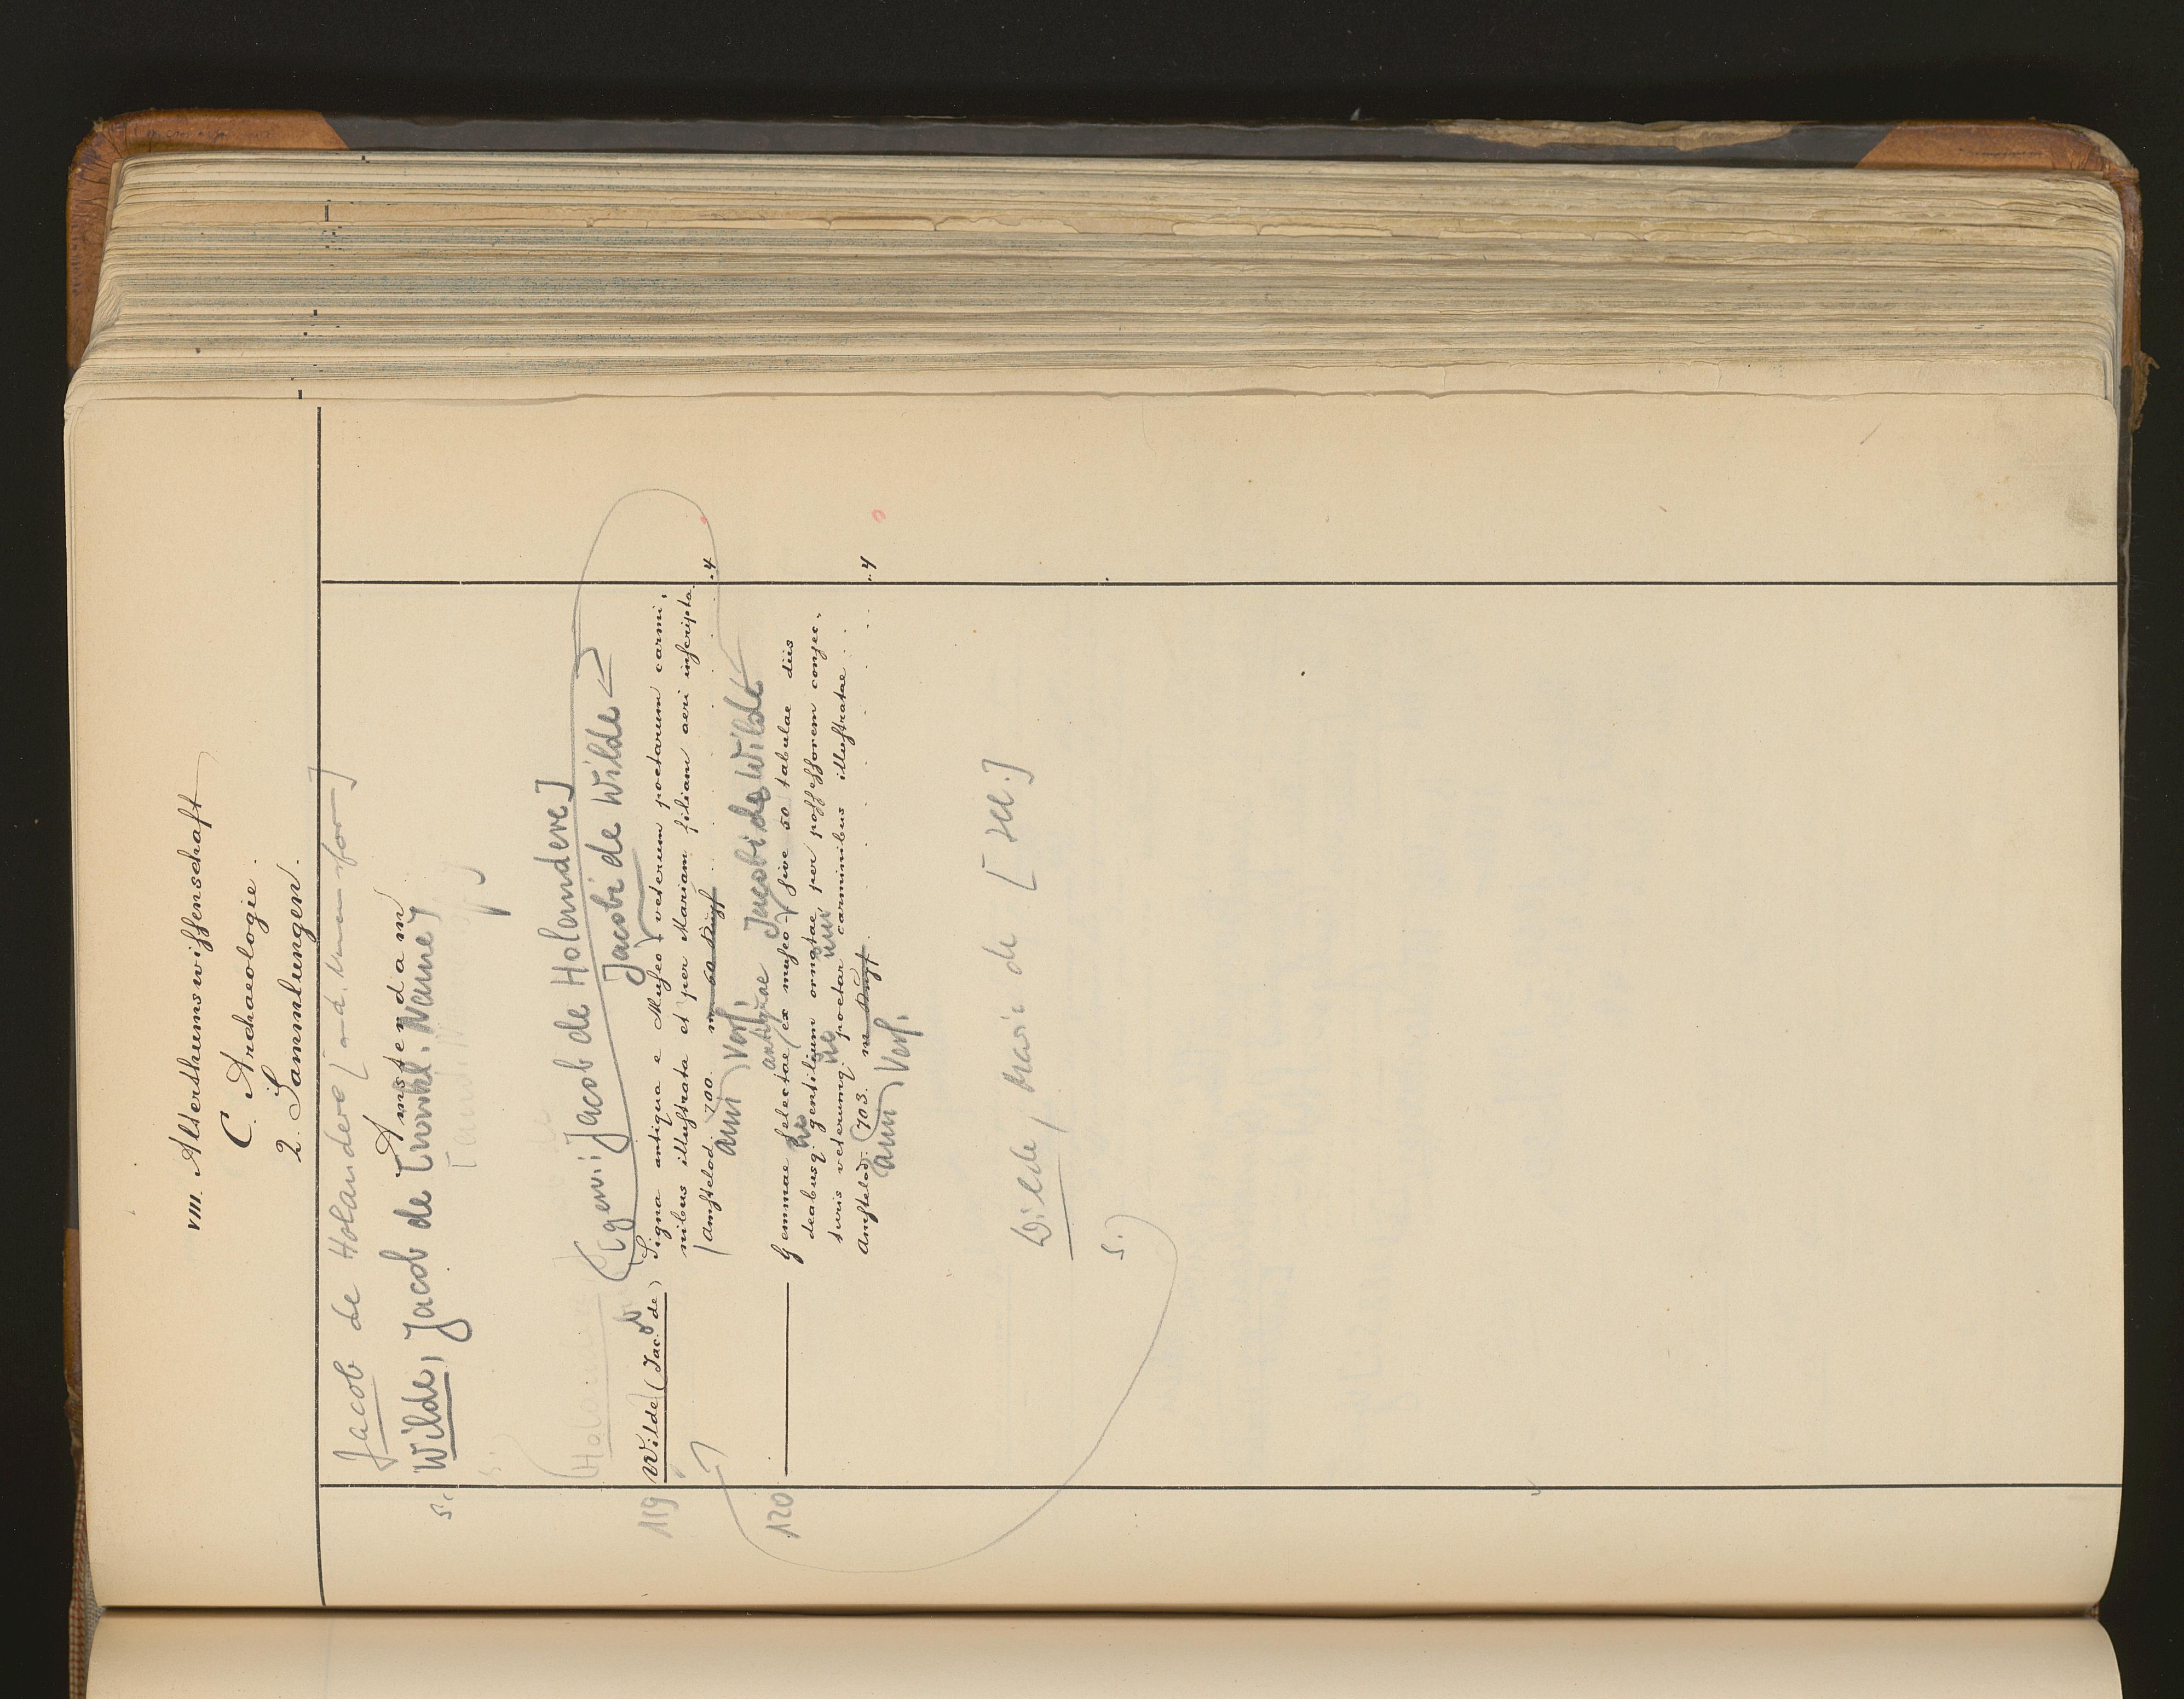 VIII. Alterthumswiſſenschaft
C. Archaeologie.
2. Sammlungen.
Jacob de Holandere
Amsterdam
s. Wilde, Jacob de [wirkl. Name]
(Eigentl. Jacob de Holandere]
Jacobi de Wilde
119 Wilde (Jac. de) Signa antiqua e Muſeo veterum poetarum carmi-
nibus illuſtrata et per Mariam filiam aeri inſcripta.
Amſtelod. 700. m. 60 Kupf. 4
aut Verf.
antiquae Jacobi de Wilde
120 Gemmae ſelectae ex muſeo ſive 50 tabulae diis
deabusq. gentilium ornatae per poſſeſſorem conjec-
turis veterumq. poetar carminibus illuſtratae
Amſtelod. 703. m. Kupf. 4
aut Verf.
Wilde, Marie de [Ill.]
s.